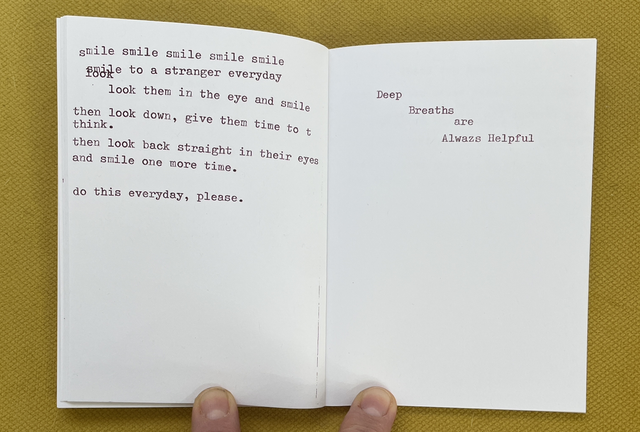 smile smile smile smile smile
smile to a stranger everyday
look
look them in the eye and smile
then look down, give them time to t
think.
then look back straight in their eyes
and smile one more time.
do this everyday, please.
Deep
Breaths
are
Alwazs Helpful